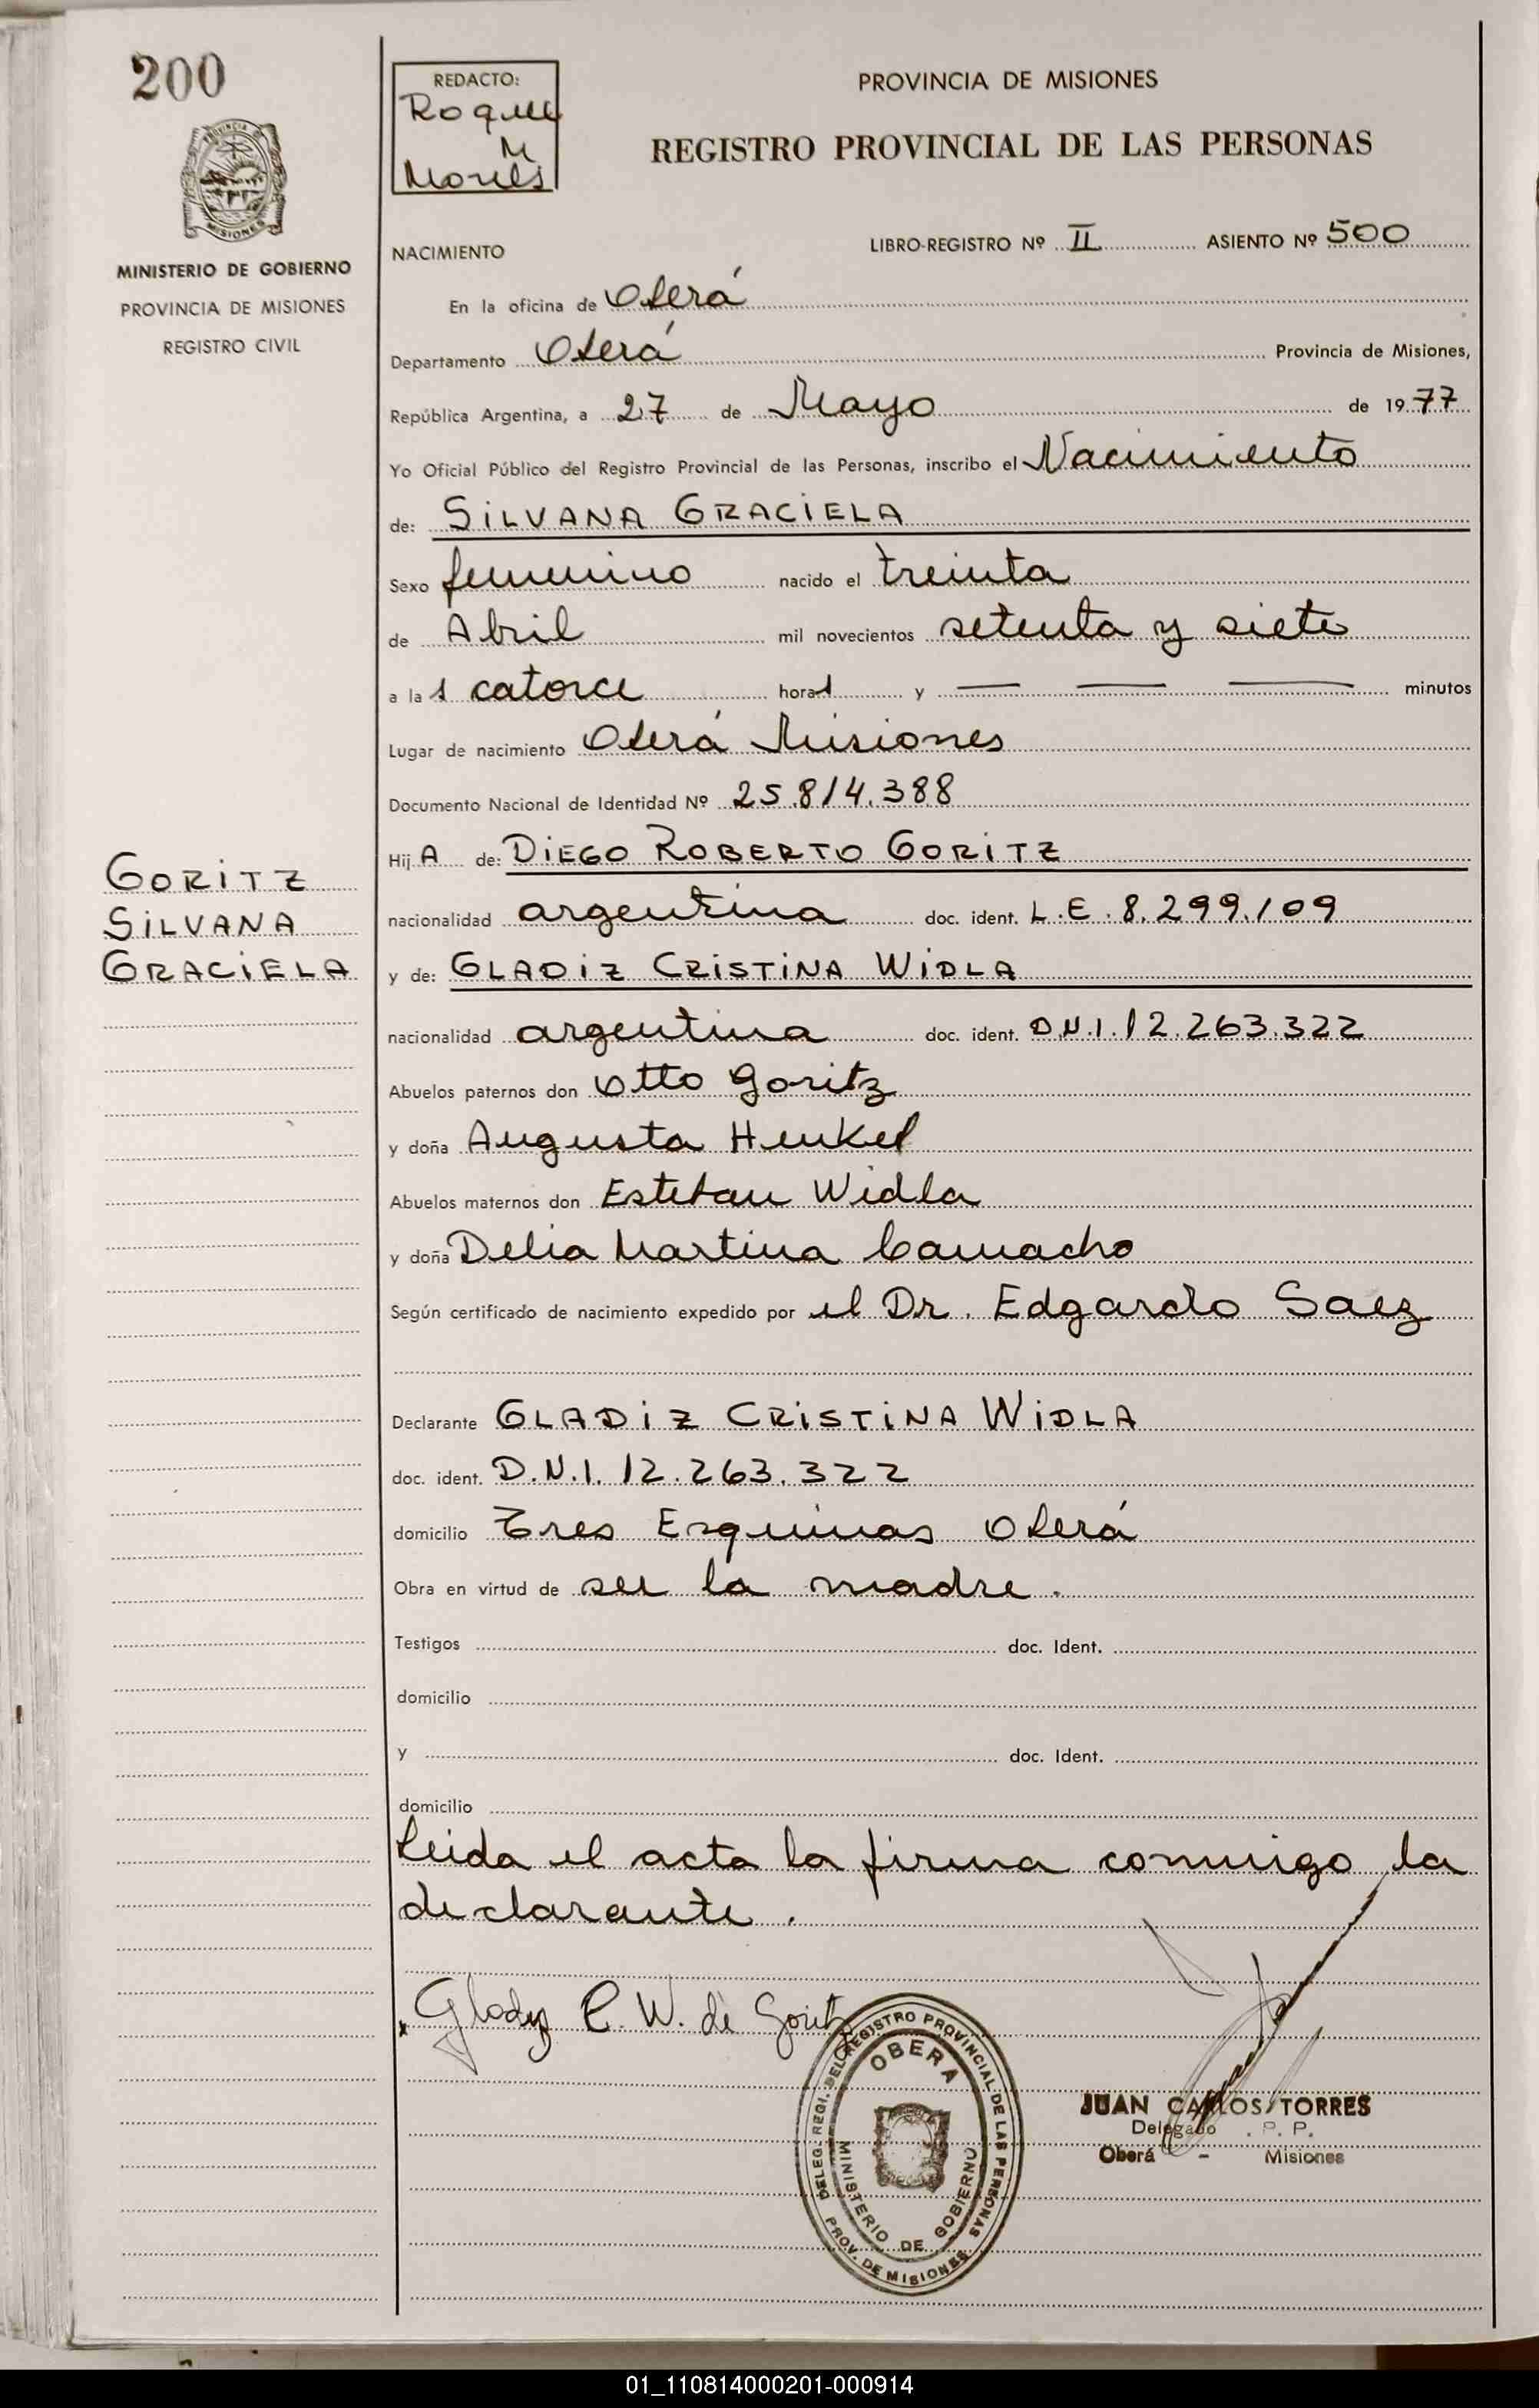 200
REDACTO:
Roque
M
PROVINCIA DE MISIONES
REGISTRO PROVINCIAL DE LAS PERSONAS
PROVINCIA DE
MISIONES
MINISTERIO DE GOBIERNO
PROVINCIA DE MISIONES
REGISTRO CIVIL
NACIMIENTO
LIBRO-REGISTRO Nº II ASIENTO Nº 500
En la oficina de Oberá
Departamento Oberá Provincia de Misiones,
República Argentina, a 27 de Mayo de 1977
Yo Oficial Público del Registro Provincial de las Personas, inscribo el Nacimiento
de: SILVANA GRACIELA
Sexo femenino nacido el treinta
de Abril mil novecientos setenta y siete
a las catorce horas y — — — minutos
Lugar de nacimiento Oberá Misiones
Documento Nacional de Identidad Nº 25.814.388
Hij A de: DIEGO ROBERTO GORITZ
GORITZ
SILVANA
GRACIELA
nacionalidad argentina doc. ident. L.E. 8.299.109
y de: GLADIZ CRISTINA WIDLA
nacionalidad argentina doc. ident. D.N.I. 12.263.322
Abuelos paternos don Otto Goritz
y doña Augusta Henkel
Abuelos maternos don Esteban Widla
y doña Delia Martina Camacho
Según certificado de nacimiento expedido por el Dr. Edgardo Saez
Declarante GLADIZ CRISTINA WIDLA
doc. ident. D.N.I. 12.263.322
domicilio Tres Esquinas Oberá
Obra en virtud de ser la madre.
Testigos doc. Ident.
domicilio
y doc. Ident.
domicilio
Leida el acta la firma conmigo la
declarante.
x Gladyz C. W. de Goritz
DELEG. REGI. DEL REGISTRO PROVINCIAL DE LAS PERSONAS
OBERA
MINISTERIO DE GOBIERNO
PROV. DE MISIONES
JUAN CARLOS TORRES
Delegado . P. P.
Oberá - Misiones
01_110814000201-000914